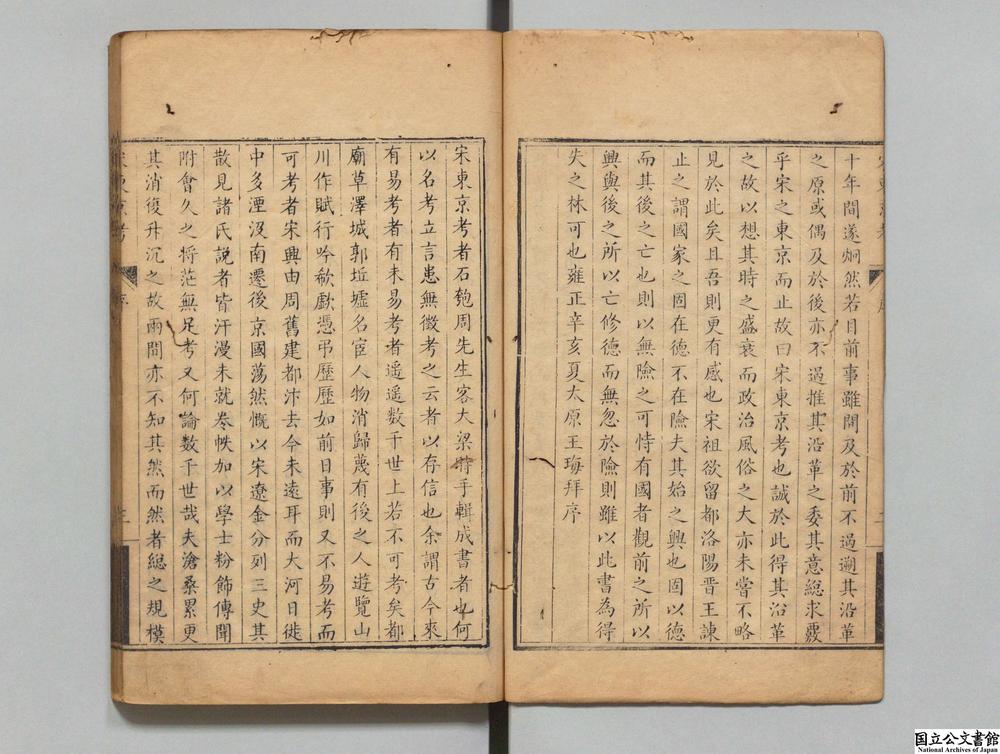 十年間遂炯然若目前事雖間及於前不過遡其沿革
之原或偶及於後亦不過推其沿革之委其意總求覈
乎宋之東京而止故曰宋東京考也誠於此得其沿革
之故以想其時之盛衰而政治風俗之大亦未嘗不略
見於此矣且吾則更有感也宋祖欲留都洛陽晋王諫
止之謂國家之固在德不在險夫其始之興也固以德
而其後之亡也則以無險之可恃有國者觀前之所以
興與後之所以亡修德而無忽於險則雖以此書為得
失之林可也雍正辛亥夏太原王珻拜序
宋東京考者石匏周先生客大梁時手輯成書者也何
以名考立言患無徵考之云者以存信也余謂古今來
有易考者有未易考者遥遥數千世上若不可考矣都
廟草澤城郭坵墟名宦人物消歸蔑有後之人遊覽山
川作賦行吟欷歔憑弔歷歷如前日事則又不易考而
可考者宋興由周舊建都汴去今未遠耳而大河日徙
中多湮没南遷後京國蕩然慨以宋遼金分列三史其
散見諸氏説者皆汗漫未就卷帙加以學士粉飾傳聞
附會久之將茫無足考又何論數千世哉夫滄桑累更
其消復升沉之故兩間亦不知其然而然者總之規模
序
國立公文書館
National Archives of Japan